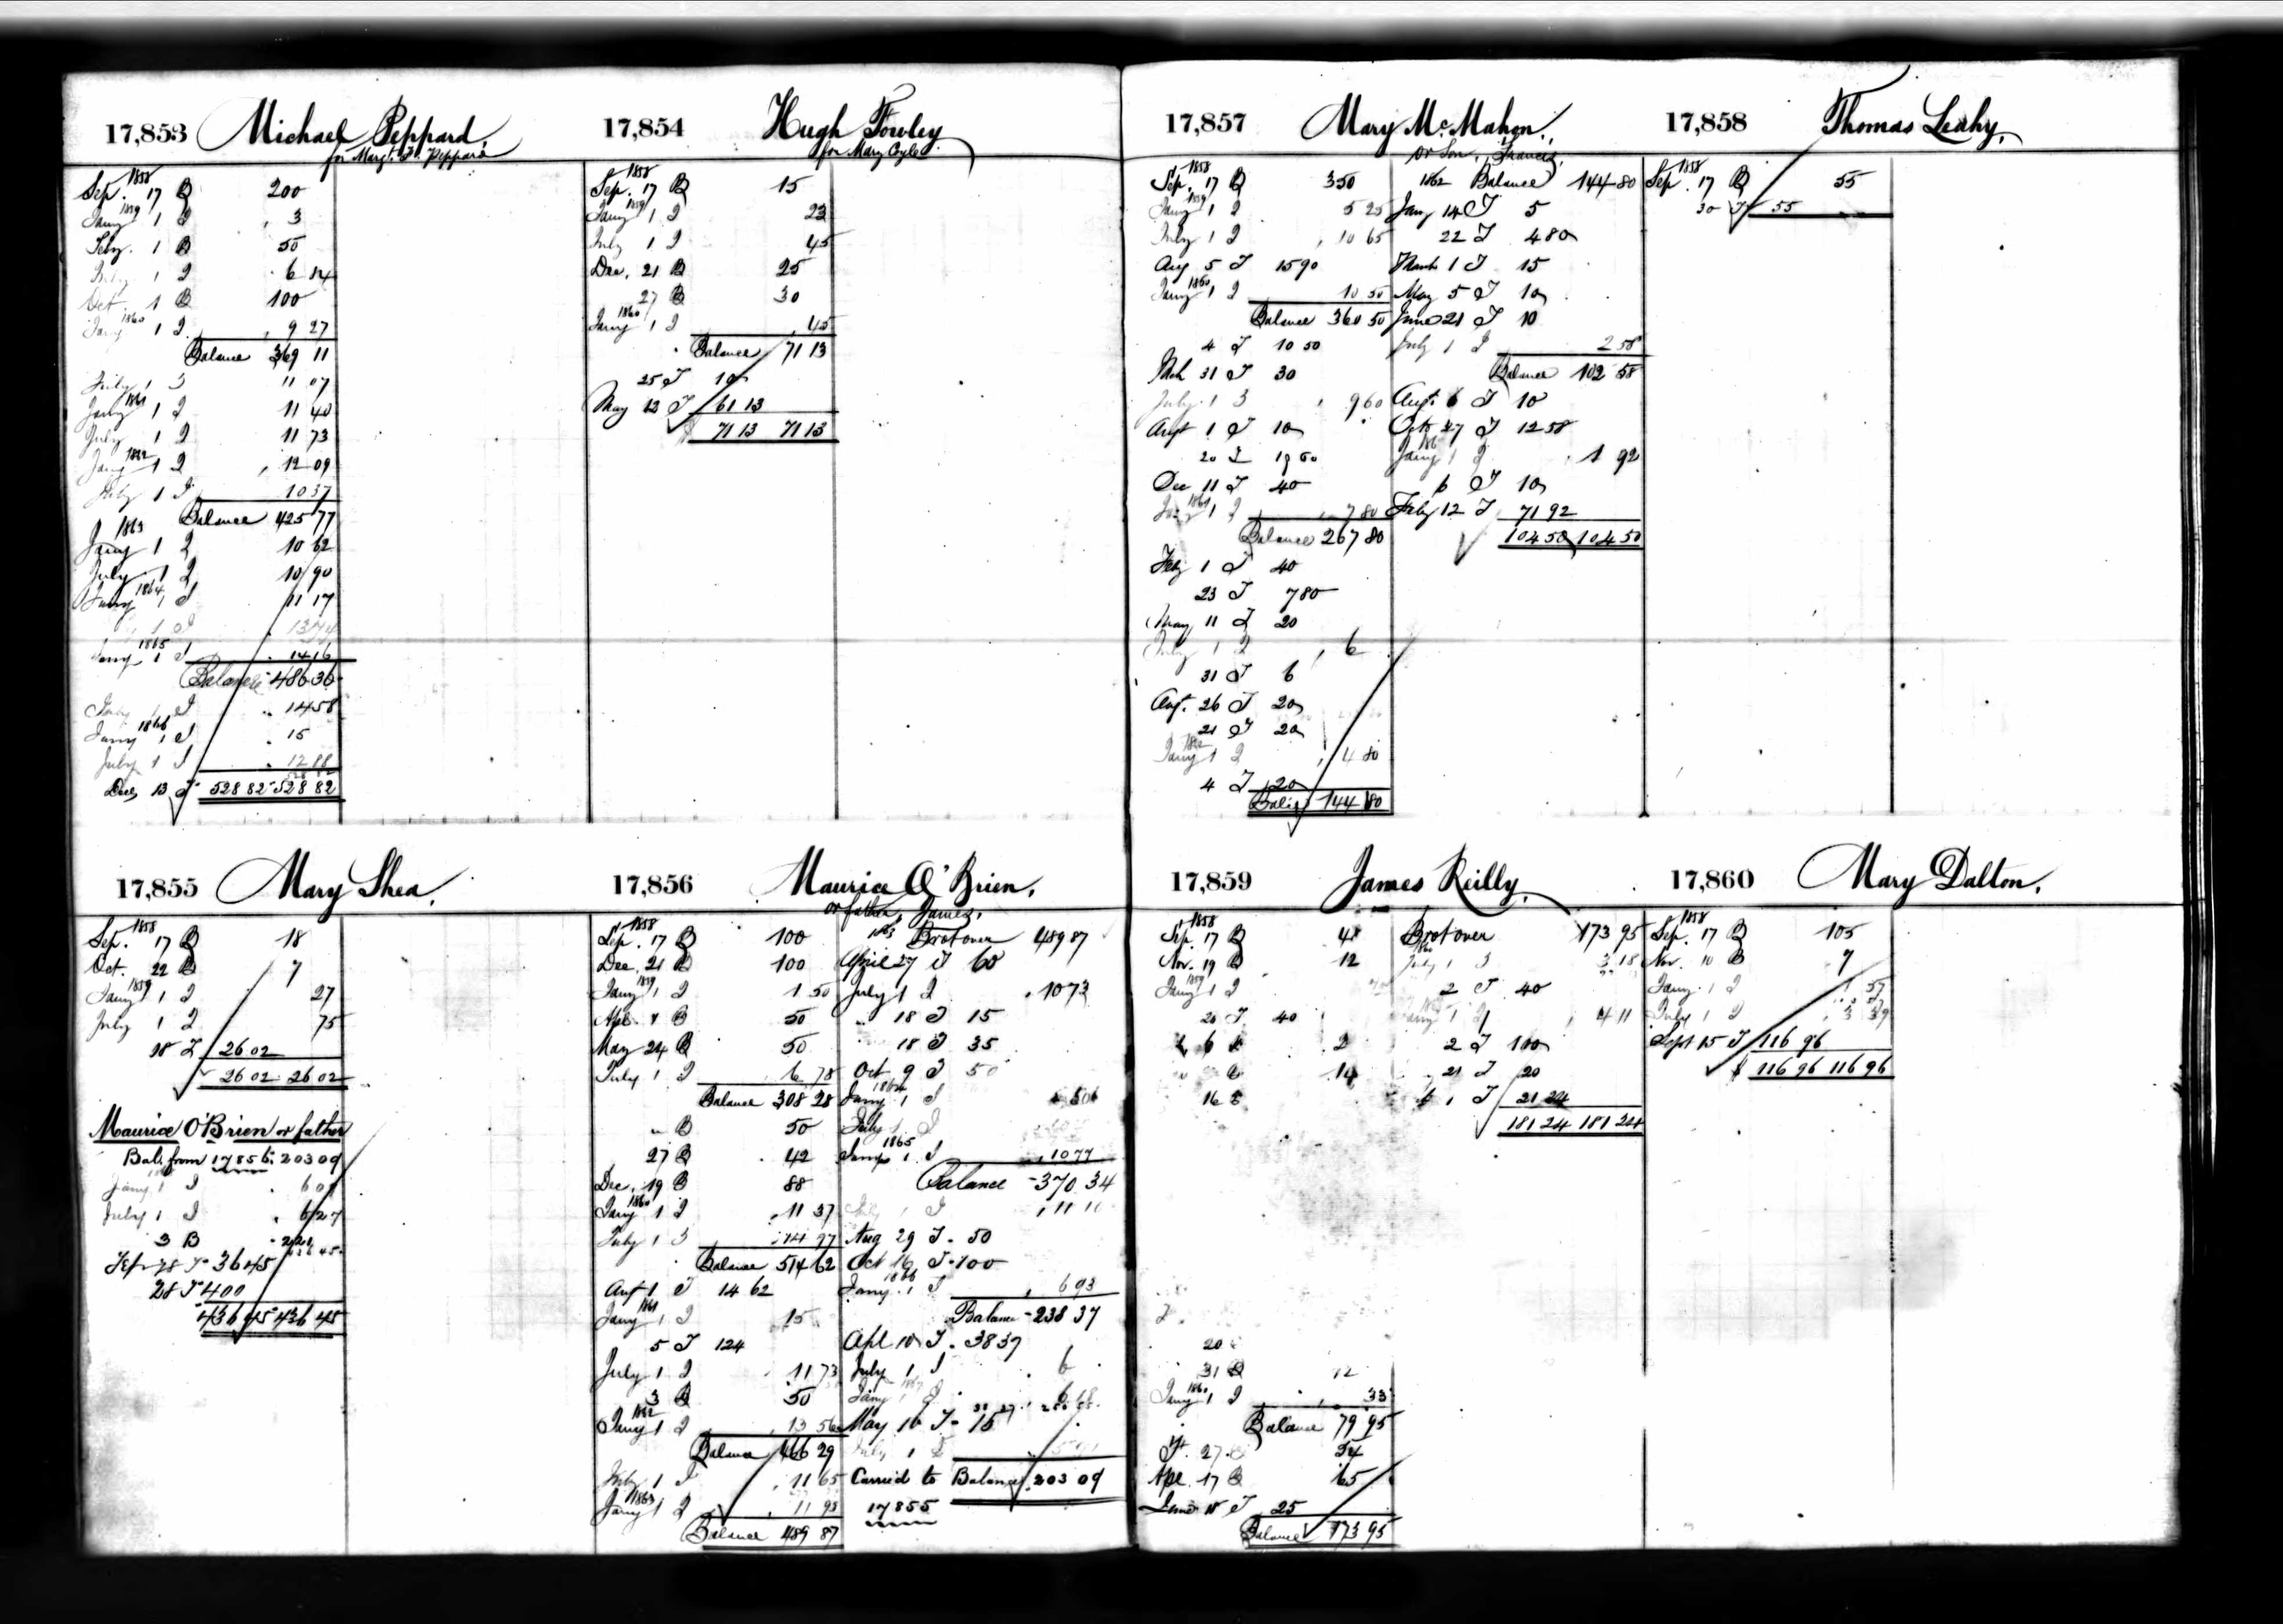 17,853 Michael Peppard,
for Margt. F. Peppard
1858
Sep. 17 B 200
1859
Jany 1 I 3
Feby. 1 B 50
July 1 I 6 14
Oct. 1 B 100
1860
Jany 1 I 9 27
Balance 369 11
July 1 I 11 07
1861
Jany 1 I 11 40
July 1 I 11 73
1862
Jany 1 I 12 09
July 1 I 10 37
Balance 425 77
1863
Jany 1 I 10 62
July 1 I 10 90
1864
Jany 1 I 11 17
1 I 13 44
1865
Jany 1 I 14 16
Balance 486 36
July 1 I 14 58
1866
Jany 1 I 15
July 1 I 12 88
Dec. 13 T 528 82 528 82
17,854 Hugh Fowley
for Mary Coyle
1858
Sep. 17 B 15
1859
Jany 1 I 23
July 1 I 45
Dec. 21 B 25
27 B 30
1860
Jany 1 I 45
Balance 71 13
25 T 10
May 12 T 61 13
71 13 71 13
17,855 Mary Shea.
1858
Sep. 17 B 18
Oct. 22 B 7
1859
Jany 1 I 27
July 1 I 75
18 T 26 02
26 02 26 02
Maurice O'Brien or father
Bal. from 17856. 203 09
Jany 1 I 6 09
July 1 I 6 27
3 B 221
Sep 28 T 36 45
28 T 400
436 45 436 45
17,856 Maurice O'Brien,
or father, James.
1858
Sep. 17 B 100
Dec. 21 B 100
1859
Jany 1 I 1 50
Apl. B 50
May 24 B 50
July 1 I 6 78
Balance 308 28
" B 50
27 B 42
Dec. 19 B 88
1860
Jany 1 I 11 37
July 1 I 14 97
Balance 514 62
Augt 1 T 14 62
1861
Jany 1 I 15
5 T 124
July 1 I 11 73
3 B 50
1862
Jany 1 I 13 56
Balance 466 29
July 1 I 11 65
1863
Jany 1 I 11 93
Balance 489 87
1863 Brot over 489 87
April 27 T 60
July 1 I 10 73
" 18 T 15
18 T 35
Oct 9 T 50
1864
Jany 1 I
July 1 I
1865
Jany 1 I 10 77
Balance 370 34
July 1 I 11 10
Aug 29 T 50
Oct 16 T 100
1866
Jany 1 I 6 93
Balance 238 37
Apl 10 T 38 37
July 1 I 6
1867
Jany 1 I 6 18
May 16 T 15
July 1 I
Carried to Balance 203 09
17855
17,857 Mary McMahon,
or Son, Francis
1858
Sep. 17 B 350
1859
Jany 1 I 5 25
July 1 I 10 65
Aug 5 T 15 90
1860
Jany 1 I 10 50
Balance 360 50
4 T 10 50
Mch 31 T 30
July 1 I 9 60
Augt 1 T 10
20 T 19 60
Dec 11 T 40
1861
Jany 1 I 7 80
Balance 267 80
Feby 1 T 40
23 T 7 80
May 11 T 20
July 1 I 6
31 T 6
Aug. 26 T 20
21 T 20
1862
Jany 1 I 4 80
4 T 20
Bal. 144 80
1862 Balance 144 80
Jany 14 T 5
22 T 4 80
March 1 T 15
May 5 T 10
June 21 T 10
July 1 I 2 58
Balance 102 58
Aug. 6 T 10
Oct 27 T 12 58
Jany 1 I 1 92
6 T 10
Feby 12 T 71 92
104 50 104 50
17,858 Thomas Leahy,
1858
Sep. 17 B 55
30 T 55
17,859 James Reilly,
1858
Sep. 17 B 4
Nov. 19 B 12
1859
Jany 1 I
20 T 40
6 2
14
16
20
31 B 12
1860
Jany 1 I 33
Balance 79 95
27 54
Apl. 17 B 65
June 18 T 25
Balance 173 95
Brot over 173 95
July 1 I 3 18
2 T 40
Jany 1 I 4 11
2 T 100
21 T 20
1 T 21 24
181 24 181 24
17,860 Mary Dalton,
1858
Sep. 17 B 105
Nov. 10 B 7
Jany 1 I 1 57
July 1 I 3 39
Sept 15 T 116 96
$ 116 96 116 96